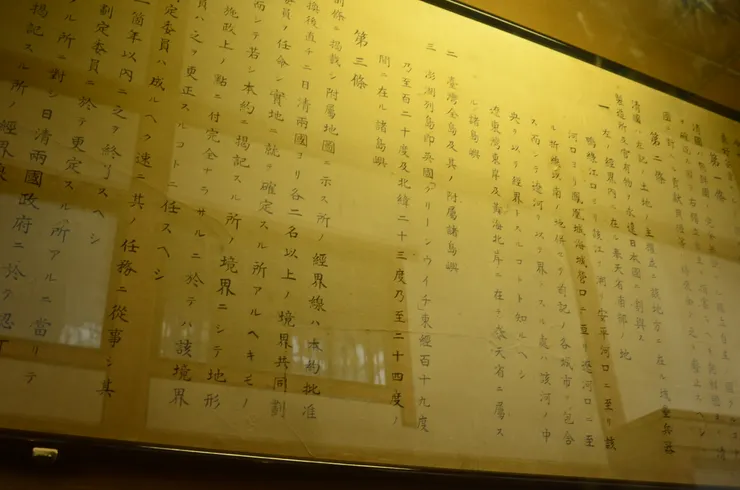 第一條
清國ハ朝鮮國
第二條
清國ハ左記ノ土地ノ主權竝ニ該地方ニ在ル城壘兵器
製造所及官有物ヲ永遠日本國ニ割與ス
一 左ノ經界内ニ在ル奉天省南部ノ地
鴨綠江口ヨリ該江ヲ溯リ安平河口ニ至リ該
河口ヨリ鳳凰城海城營口ニ亘リ遼河口ニ至
ル折線以南ノ地併セテ前記ノ各城市ヲ包含
ス而シテ遼河ヲ以テ界トスル處ハ該河ノ中
央ヲ以テ經界トスルコトト知ルヘシ
遼東灣東岸及黃海北岸ニ在テ奉天省ニ屬ス
ル諸島嶼
二 臺灣全島及其ノ附屬諸島嶼
三 澎湖列島即英國グリーンウイチ東經百十九度
乃至百二十度及北緯二十三度乃至二十四度ノ
間ニ在ル諸島嶼
第三條
前條ニ掲載シ附屬地圖ニ示ス所ノ經界線ハ本約批准
換後直チニ日清兩國ヨリ各二名以上ノ境界共同劃
委員ヲ任命シ實地ニ就テ確定スル所アルヘキモノ
而シテ若シ本約ニ掲記スル所ノ境界ニシテ地形
施政上ノ點ニ付完全ナラサルニ於テハ該境界
員ハ之ヲ更正スルコトニ任スヘシ
定委員ハ成ルヘク速ニ其ノ任務ニ從事シ其
一箇年以内ニ之ヲ終了スヘシ
劃定委員ニ於テ更定スル所アルニ當リテ
ル所ニ對シ日清兩國政府ニ於テ認可
掲記スル所ノ經界